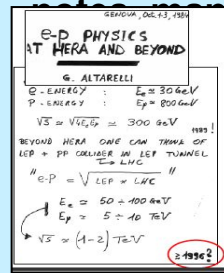 GENOVA, Oct. 1-3, 1984
e-p PHYSICS
AT HERA AND BEYOND
G. ALTARELLI
e - ENERGY : Ee ≃ 30 GeV
P - ENERGY : Ep ≃ 800 GeV
√s ≃ √4EeEp ≃ 300 GeV
BEYOND HERA ONE CAN THINK OF
LEP + PP COLLIDER IN LEP TUNNEL
↳ LHC
"e-P = √LEP × LHC"
Ee ≃ 50 ÷ 100 GeV
Ep ≃ 5 ÷ 10 TeV
√s ≃ (1-2) TeV
≥ 1996?